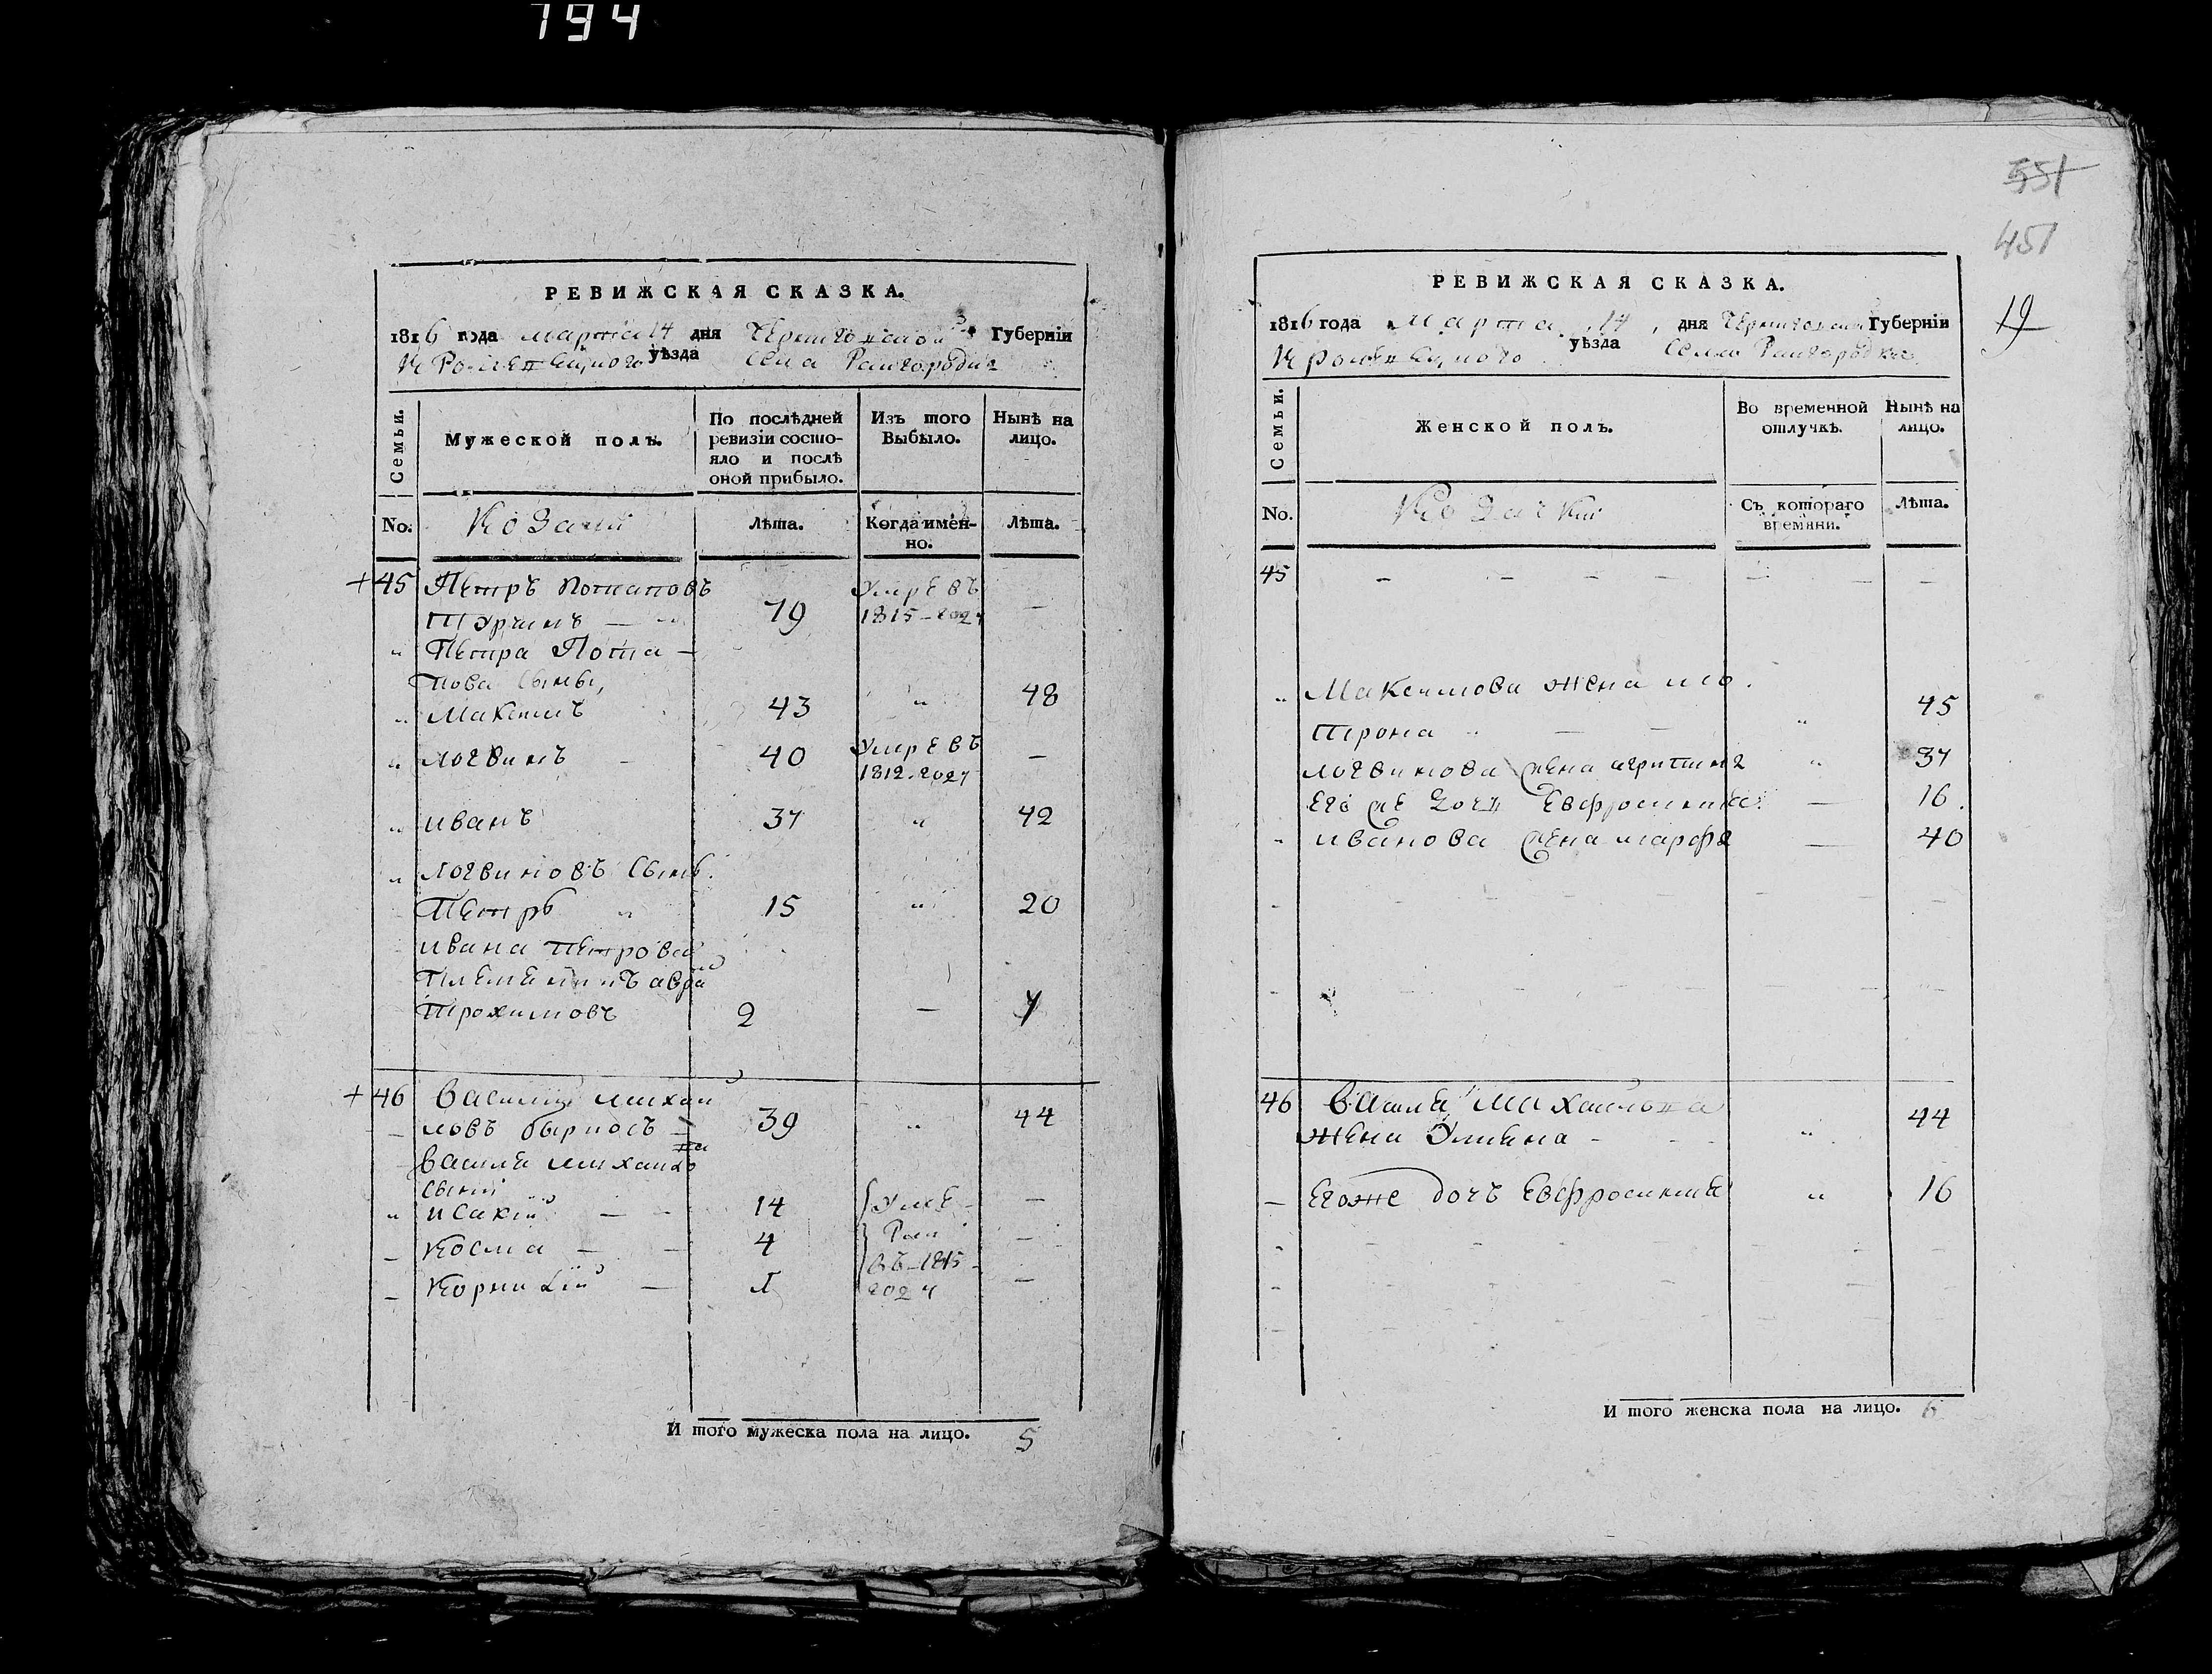 794
РЕВИЖСКАЯ СКАЗКА.
1816 года марта 14 дня Черниговской Губерніи
Кролевецкого уѣзда Села Райгородка
Семьи.
Мужеской полъ.
По послѣдней ревизіи состояло и послѣ оной прибыло.
Изъ того Выбыло.
Нынѣ на лицо.
No.
Козаки
Лѣта.
Когда имен-
но.
Лѣта.
+45 Петръ Потаповъ
79
Умре въ
1815-годꙋ
—
„ Петра Пота-
пова сыны,
„ Максимъ 43 „ 48
„ Логвинъ 40 Умре въ —
1812-годꙋ
„ иванъ 37 „ 42
„ логвиновъ сынъ.
Петръ „ 15 „ 20
ивана Петрова
Племенникъ
Трохимовъ 2 — 7
+46 Василий михаи
ловъ 39 „ 44
василя михаило
сыни
„ исакій — — 14 Уме- —
— Косма — — 4 рли —
въ-1815-
— Корнилій — 1 годꙋ —
И того мужеска пола на лицо. 5
551
451
19
РЕВИЖСКАЯ СКАЗКА.
1816 года Марта 14, дня Черниговской Губерніи
Кролевецкого уѣзда Села Райгородка
Семьи.
Женской полъ.
Во временной отлучкѣ.
Нынѣ на лицо.
No.
Козачки
Съ котораго
времяни.
Лѣта.
45 — — — — — — —
„ Максимова жена мо-
трона „ — — „ 45
логвинова жена агрипина „ 37
его же дочь Евфросинія — 16.
„ иванова жена марфа — 40
46 василя михаилова
жена Улияна - „ 44
— Егоже дочъ Евфросиния „ 16
И того женска пола на лицо. 6